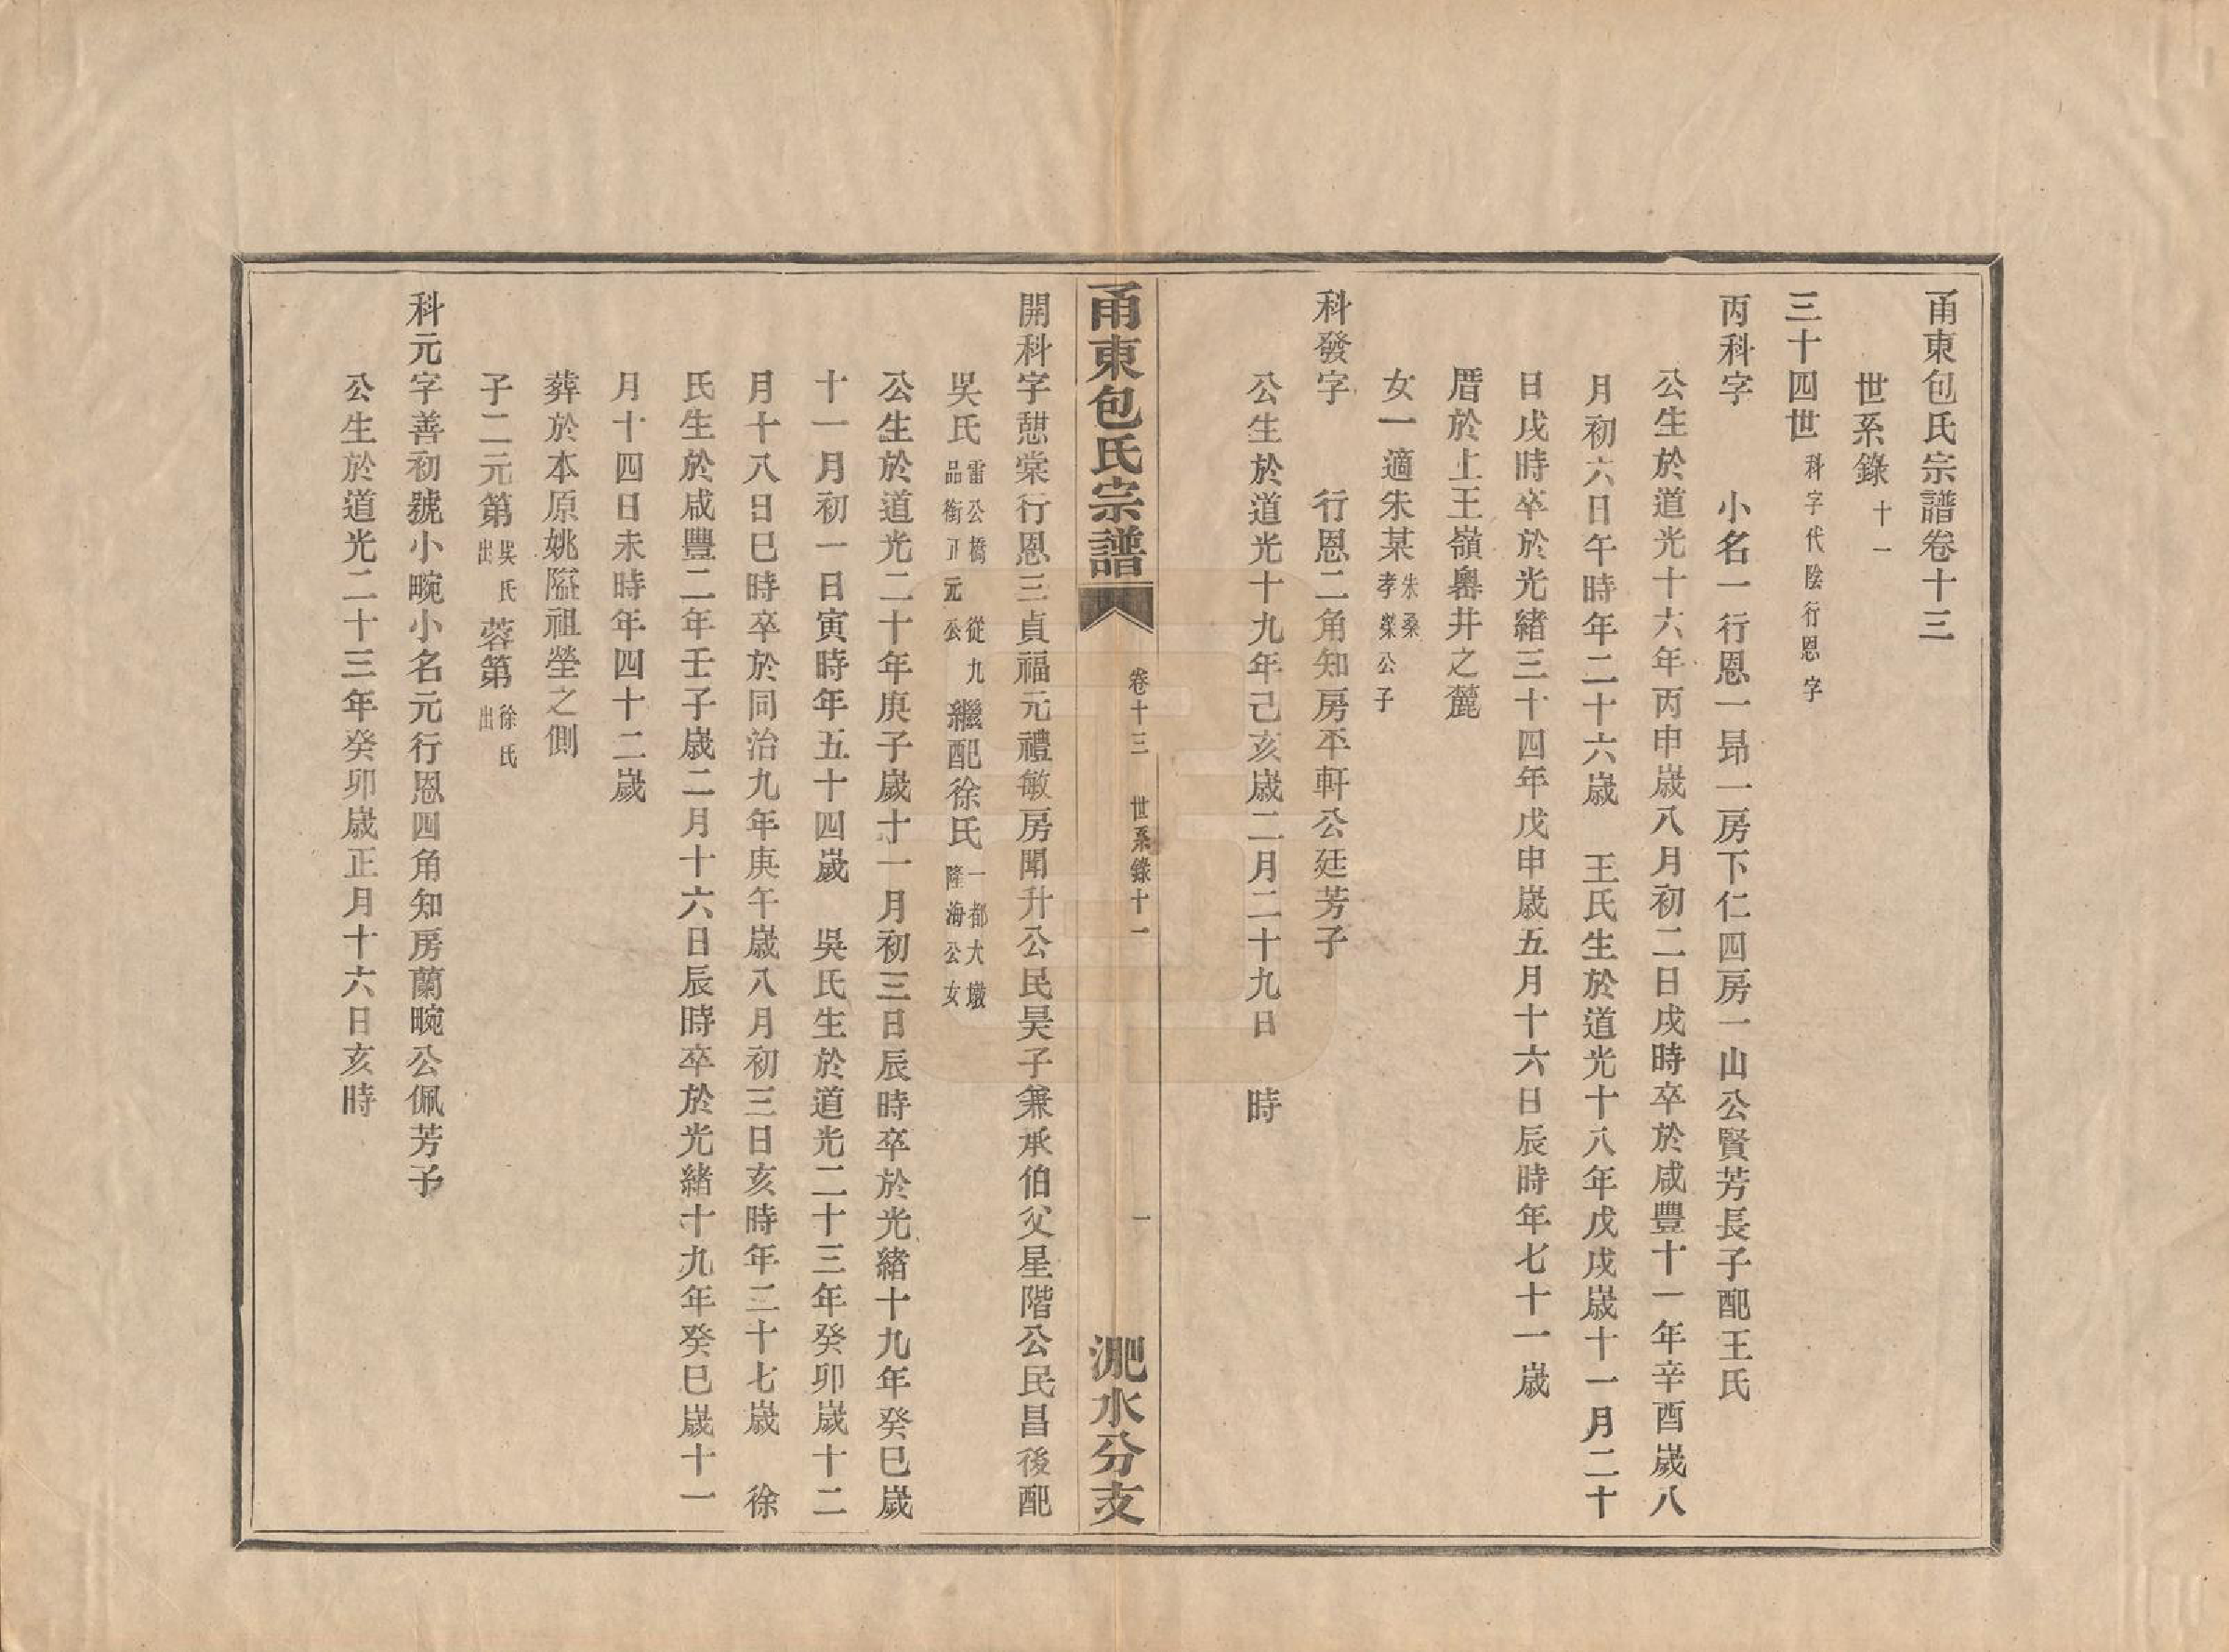 甬東包氏宗譜卷十三
世系錄十一
三十四世科字代陰行恩字
丙科字　小名一行恩一昴一房下仁四房一山公賢芳長子配王氏
公生於道光十六年丙申歲八月初二日戌時卒於咸豐十一年辛酉歲八
月初六日午時年二十六歲　王氏生於道光十八年戊戌歲十一月二十
日戌時卒於光緒三十四年戊申歲五月十六日辰時年七十一歲
厝於上王嶺嶴井之麓
女一適朱某朱桑孝榮公子
科發字　行恩二角知房平軒公廷芳子
公生於道光十九年己亥歲二月二十九日　時
甬東包氏宗譜　卷十三　世系錄十一　一　淝水分支
開科字憇棠行恩三貞福元禮敏房聞升公民昊子兼承伯父星階公民昌後配
吳氏雷公橋從九品銜正元公繼配徐氏一都大墩隆海公女
公生於道光二十年庚子歲十一月初三日辰時卒於光緒十九年癸巳歲
十一月初一日寅時年五十四歲　吳氏生於道光二十三年癸卯歲十二
月十八日巳時卒於同治九年庚午歲八月初三日亥時年二十七歲　徐
氏生於咸豐二年壬子歲二月十六日辰時卒於光緒十九年癸巳歲十一
月十四日未時年四十二歲
葬於本原姚隘祖塋之側
子二元第吳氏出蓉第徐氏出
科元字善初號小畹小名元行恩四角知房蘭畹公佩芳子
公生於道光二十三年癸卯歲正月十六日亥時